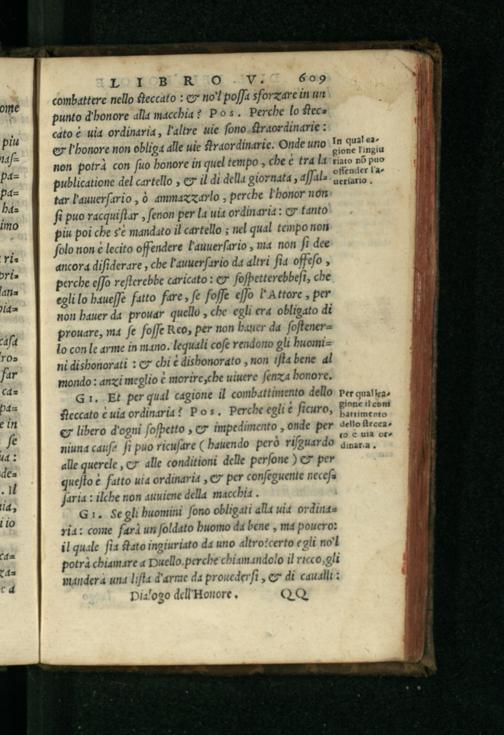 LIBRO V. 609
combattere nello steccato : & no'l possa sforzare in un
punto d'honore alla macchia? Pos. Perche lo stec=
cato è via ordinaria, l'altre uie sono straordinarie :
& l'honore non obliga alle uie straordinarie. Onde uno
non potrà con suo honore in quel tempo, che è tra la
publicatione del cartello, & il dì della giornata, assal=
tar l'auuersario, ò ammazzarlo, perche l'honor non
si puo racquistar, senon per la uia ordinaria : & tanto
piu poi che s'è mandato il cartello ; nel qual tempo non
solo non è lecito offendere l'auuersario, ma non si dee
ancora disiderare, che l'auuersario da altri sia offeso,
perche esso resterebbe caricato : & sospetterebbesi, che
egli lo hauesse fatto fare, se fosse esso l'Attore, per
non hauer da prouar quello, che egli era obligato di
prouare, ma se fosse Reo, per non hauer da sostener=
lo con le arme in mano. lequali cose rendono gli huomi=
ni dishonorati : & chi è dishonorato, non ista bene al
mondo : anzi meglio è morire, che uiuere senza honore.
GI. Et per qual cagione il combattimento dello
steccato è uia ordinaria? Pos. Perche egli è sicuro,
& libero d'ogni sospetto, & impedimento, onde per
niuna causa si può ricusare (hauendo però risguardo
alle querele, & alle conditioni delle persone) & per
questo è fatto uia ordinaria, & per conseguente neces=
saria : ilche non auuiene della macchia.
GI. Se gli huomini sono obligati alla uia ordina=
ria : come farà un soldato huomo da bene, ma pouero:
il quale sia stato ingiuriato da uno altro?certo egli no'l
potrà chiamare a Duello.perche chiamandolo il ricco,gli
manderà una lista d'arme da prouedersi, & di caualli :
Dialogo dell'Honore. QQ
In qual ca-
gione l'ingiu
riato nō può
offender l'a-
uersario.
Per qual ca-
gione il com
battimento
dello stecca-
to è uia or-
dinaria.
ome
piu
pa=
pa=
ha=
imo
ri=
ori=
casa
far
ca=
pa=
e in
se
de=
. Il
ca=
za=